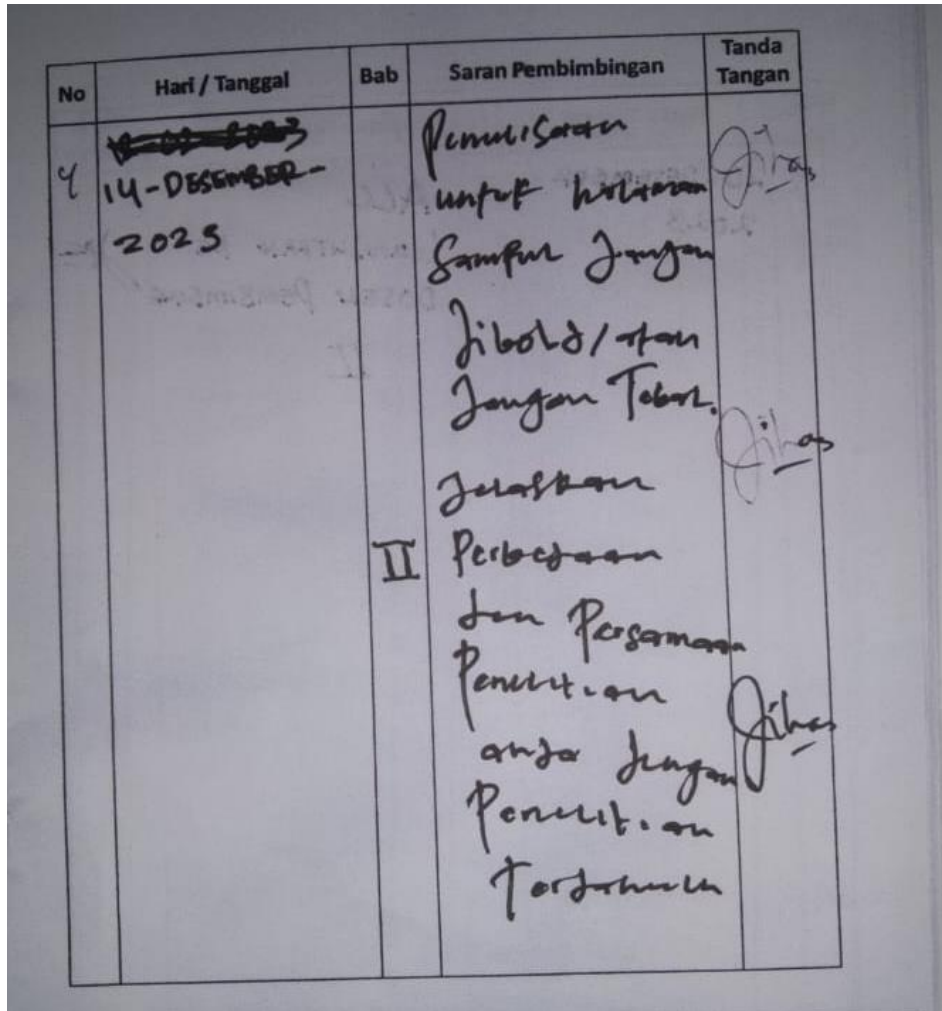 No Hari / Tanggal Bab Saran Pembimbingan Tanda Tangan
4 14-DESEMBER-
2023
Penulisaran
untuk halaman
Sampul Jangan
dibold/atau
Jangan Tebal.
Jelaskan
II Perbedaan
dan Persamaan
Penelitian
anda dengan
Penelitian
Terdahulu
Jihas
Jihas
Jihas